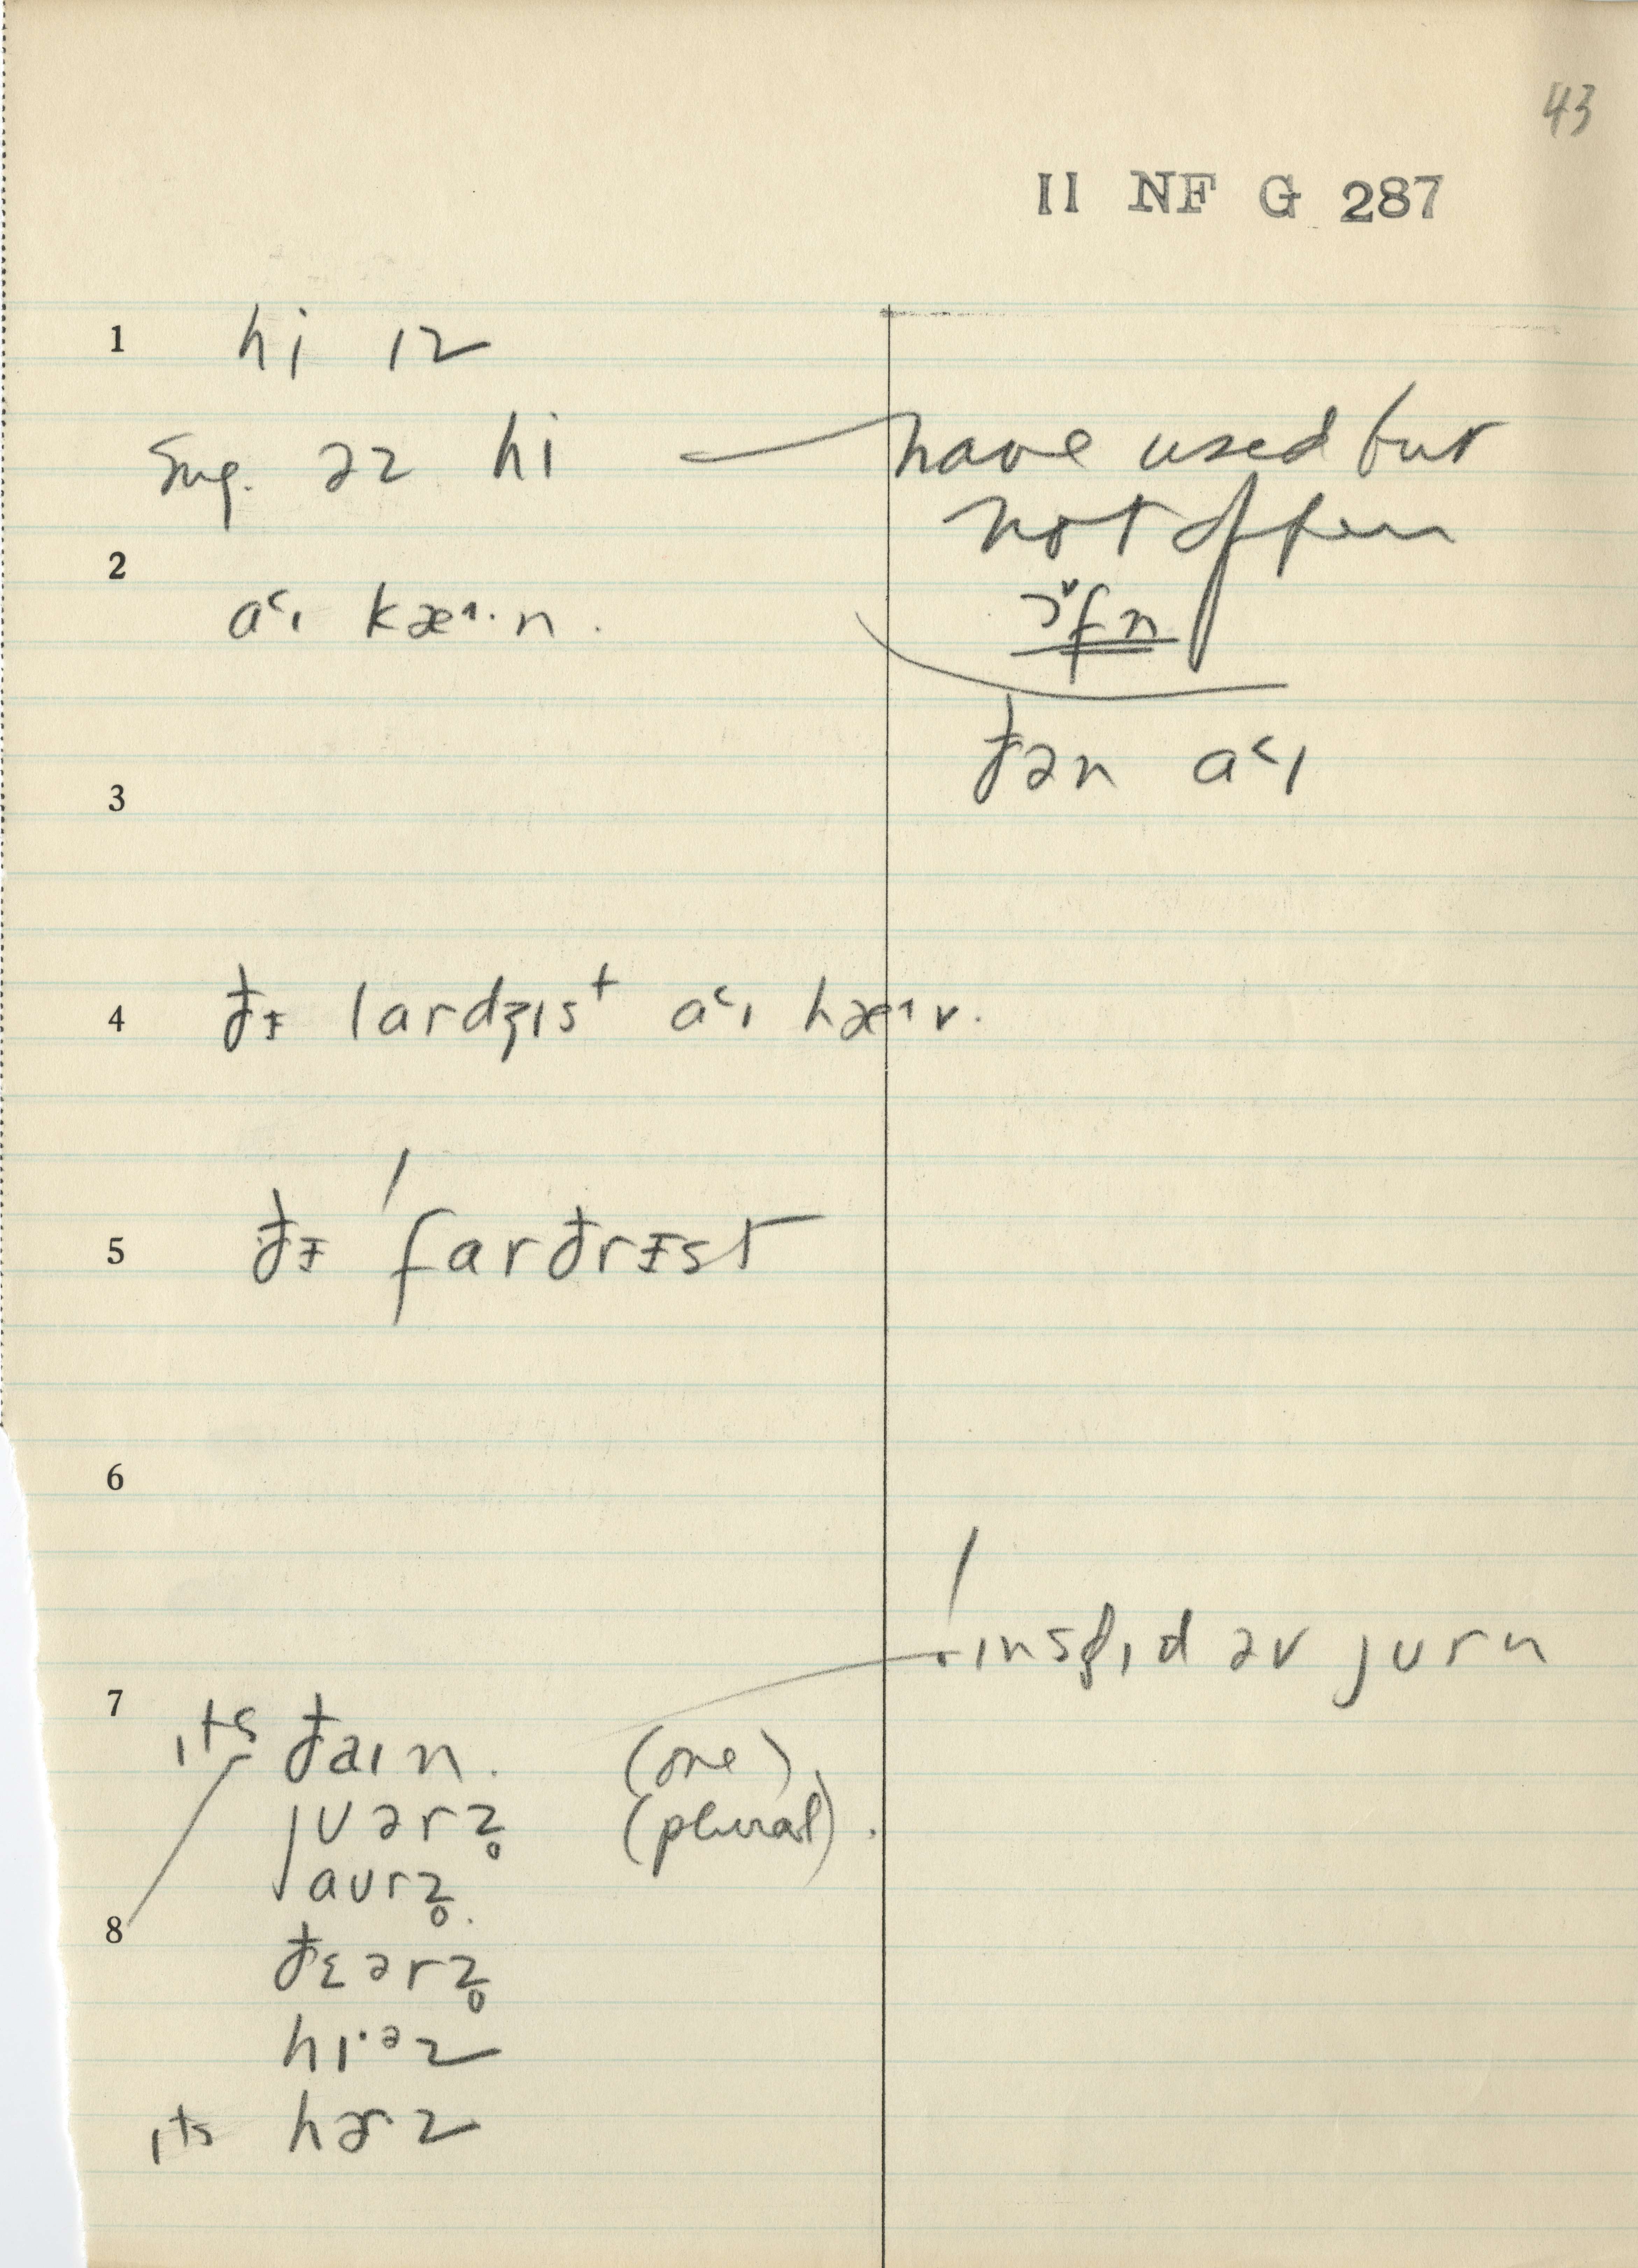 43
II NF G 287
1 hi ɪz
Sug. əz hi — have used but
not often
ɔ˅fn
2 a˂ɪ kæ˄·n.
ðən a˂ɪ
3
4 ðɨ lardʒɪst a˂ɪ hæ˄v.
5 ðɨ farðrɨst
6
ɪnsɑɪd əv jʊrn
7 ɪts ðaɪn. (one)
jʊərz̥ (plural).
aʊrz̥.
8
ðɛərz̥
hɪ·əz
ɪts hɚz